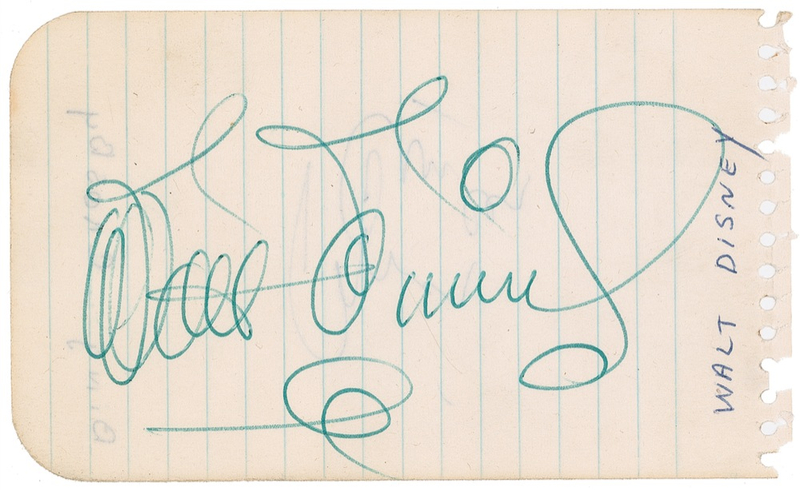 Walt Disney
WALT DISNEY